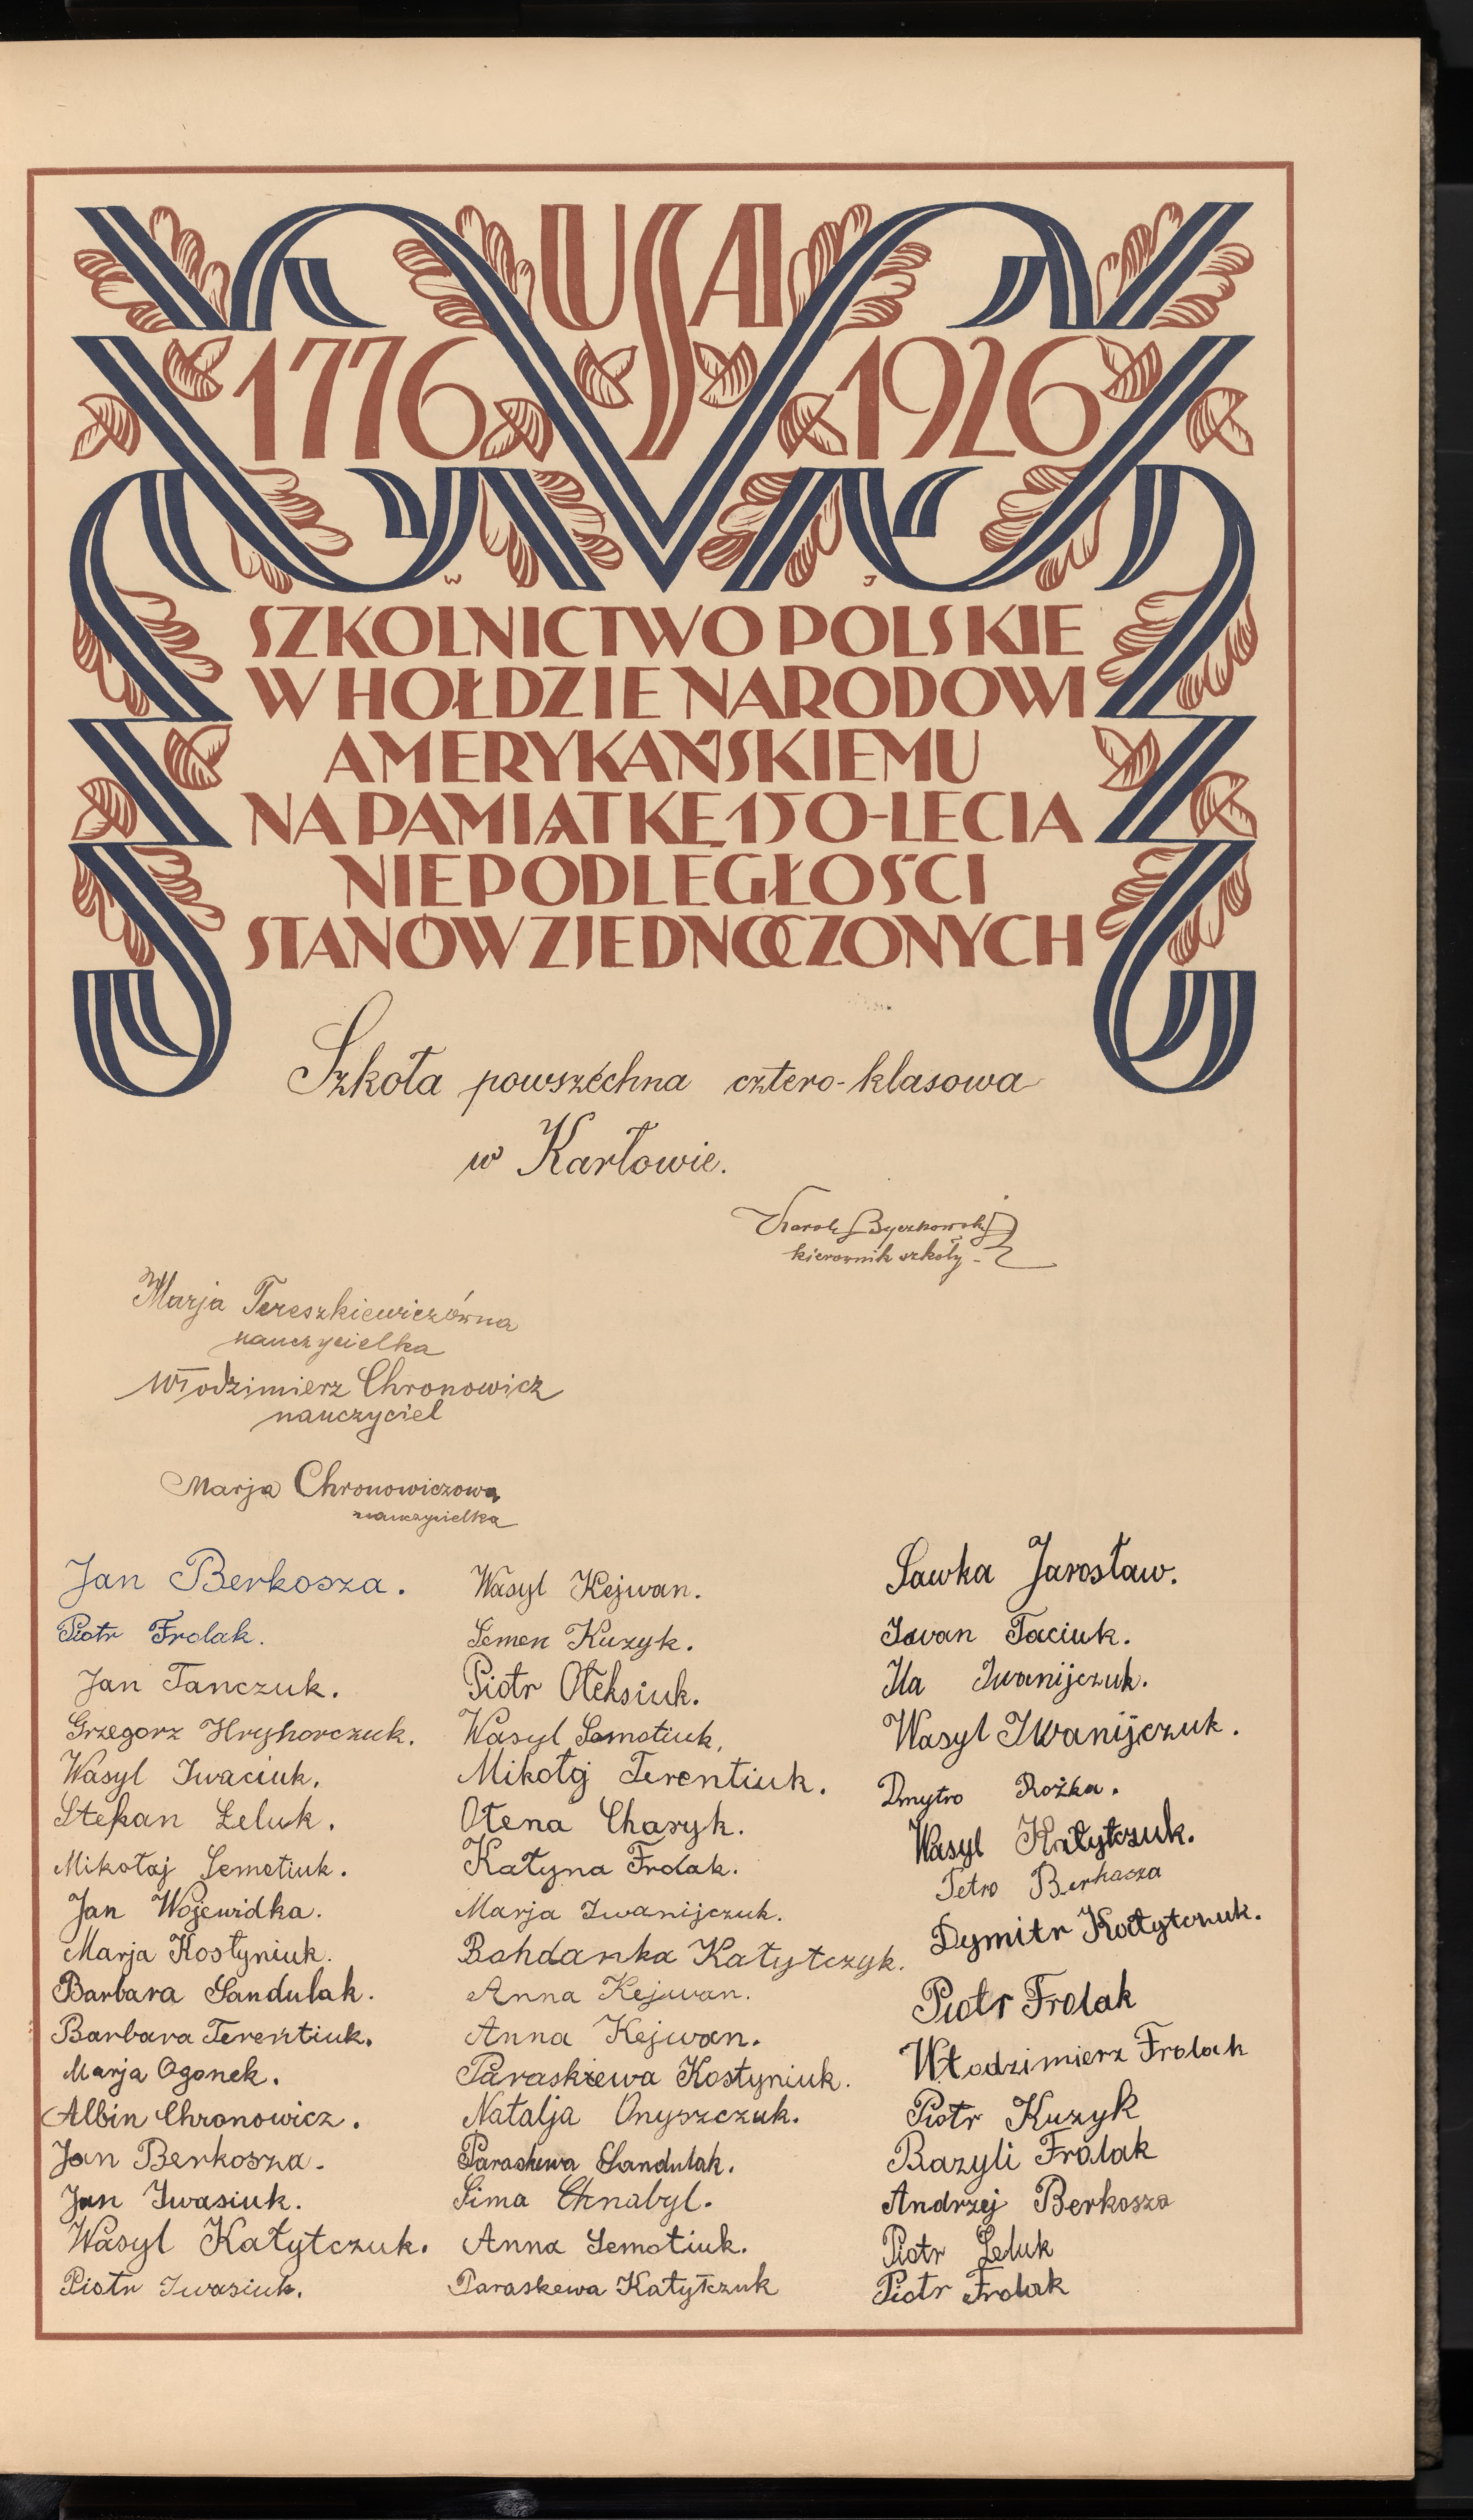 USA
1776 1926
W J
SZKOLNICTWO POLSKIE
W HOŁDZIE NARODOWI
AMERYKAŃSKIEMU
NA PAMIĄTKĘ 150-LECIA
NIEPODLEGŁOŚCI
STANÓW ZJEDNOCZONYCH
Szkoła powszechna cztero-klasowa
w Karłowie.
Karol Byczkowski
kierownik szkoły
Marja Tereszkiewiczówna
nauczycielka
Włodzimierz Chronowicz
nauczyciel
Marja Chronowiczowa
nauczycielka
Jan Berkosza.
Piotr Frolak.
Jan Tanczuk.
Grzegorz Hryhorczuk.
Wasyl Iwaciuk.
Stefan Zeluk.
Mikołaj Semotiuk.
Jan Wojewidka.
Marja Kostyniuk.
Barbara Sandulak.
Barbara Terentiuk.
Marja Ogonek.
Albin Chronowicz.
Jan Berkosza.
Jan Iwasiuk.
Wasyl Katytczuk.
Piotr Iwasiuk.
Wasyl Kejwan.
Semen Kuzyk.
Piotr Ołeksiuk.
Wasyl Semotiuk.
Mikołaj Terentiuk.
Ołena Chasyk.
Katyna Frolak.
Marja Iwanijczuk.
Bohdanka Katytczyk.
Anna Kejwan.
Anna Kejwan.
Paraskiewa Kostyniuk.
Natalja Onyszczuk.
Paraskewa Sandulak.
Sima Chnabyl.
Anna Semotiuk.
Paraskewa Katytczuk
Sawka Jarosław.
Iwan Taciuk.
Ila Iwanijczuk.
Wasyl Iwanijczuk.
Dmytro Rożka.
Wasyl Katytczuk.
Petro Berkasza
Dymitr Katytczuk.
Piotr Frolak
Włodzimierz Frolak
Piotr Kuzyk
Bazyli Frolak
Andrzej Berkosza
Piotr Zeluk
Piotr Frolak